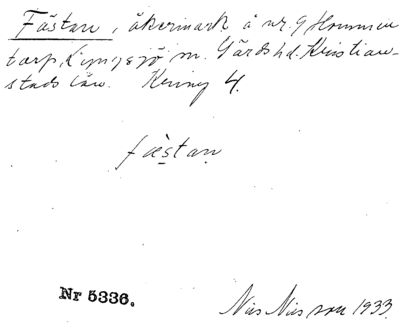 Fästan, åkermark å nr. 9 Hommen
tarp, Lyngsjö m. Gärds hd. Kristian-
stads län. Kenny 4.
fæstan
Nr 5336.
Nils Nilsson 1933.